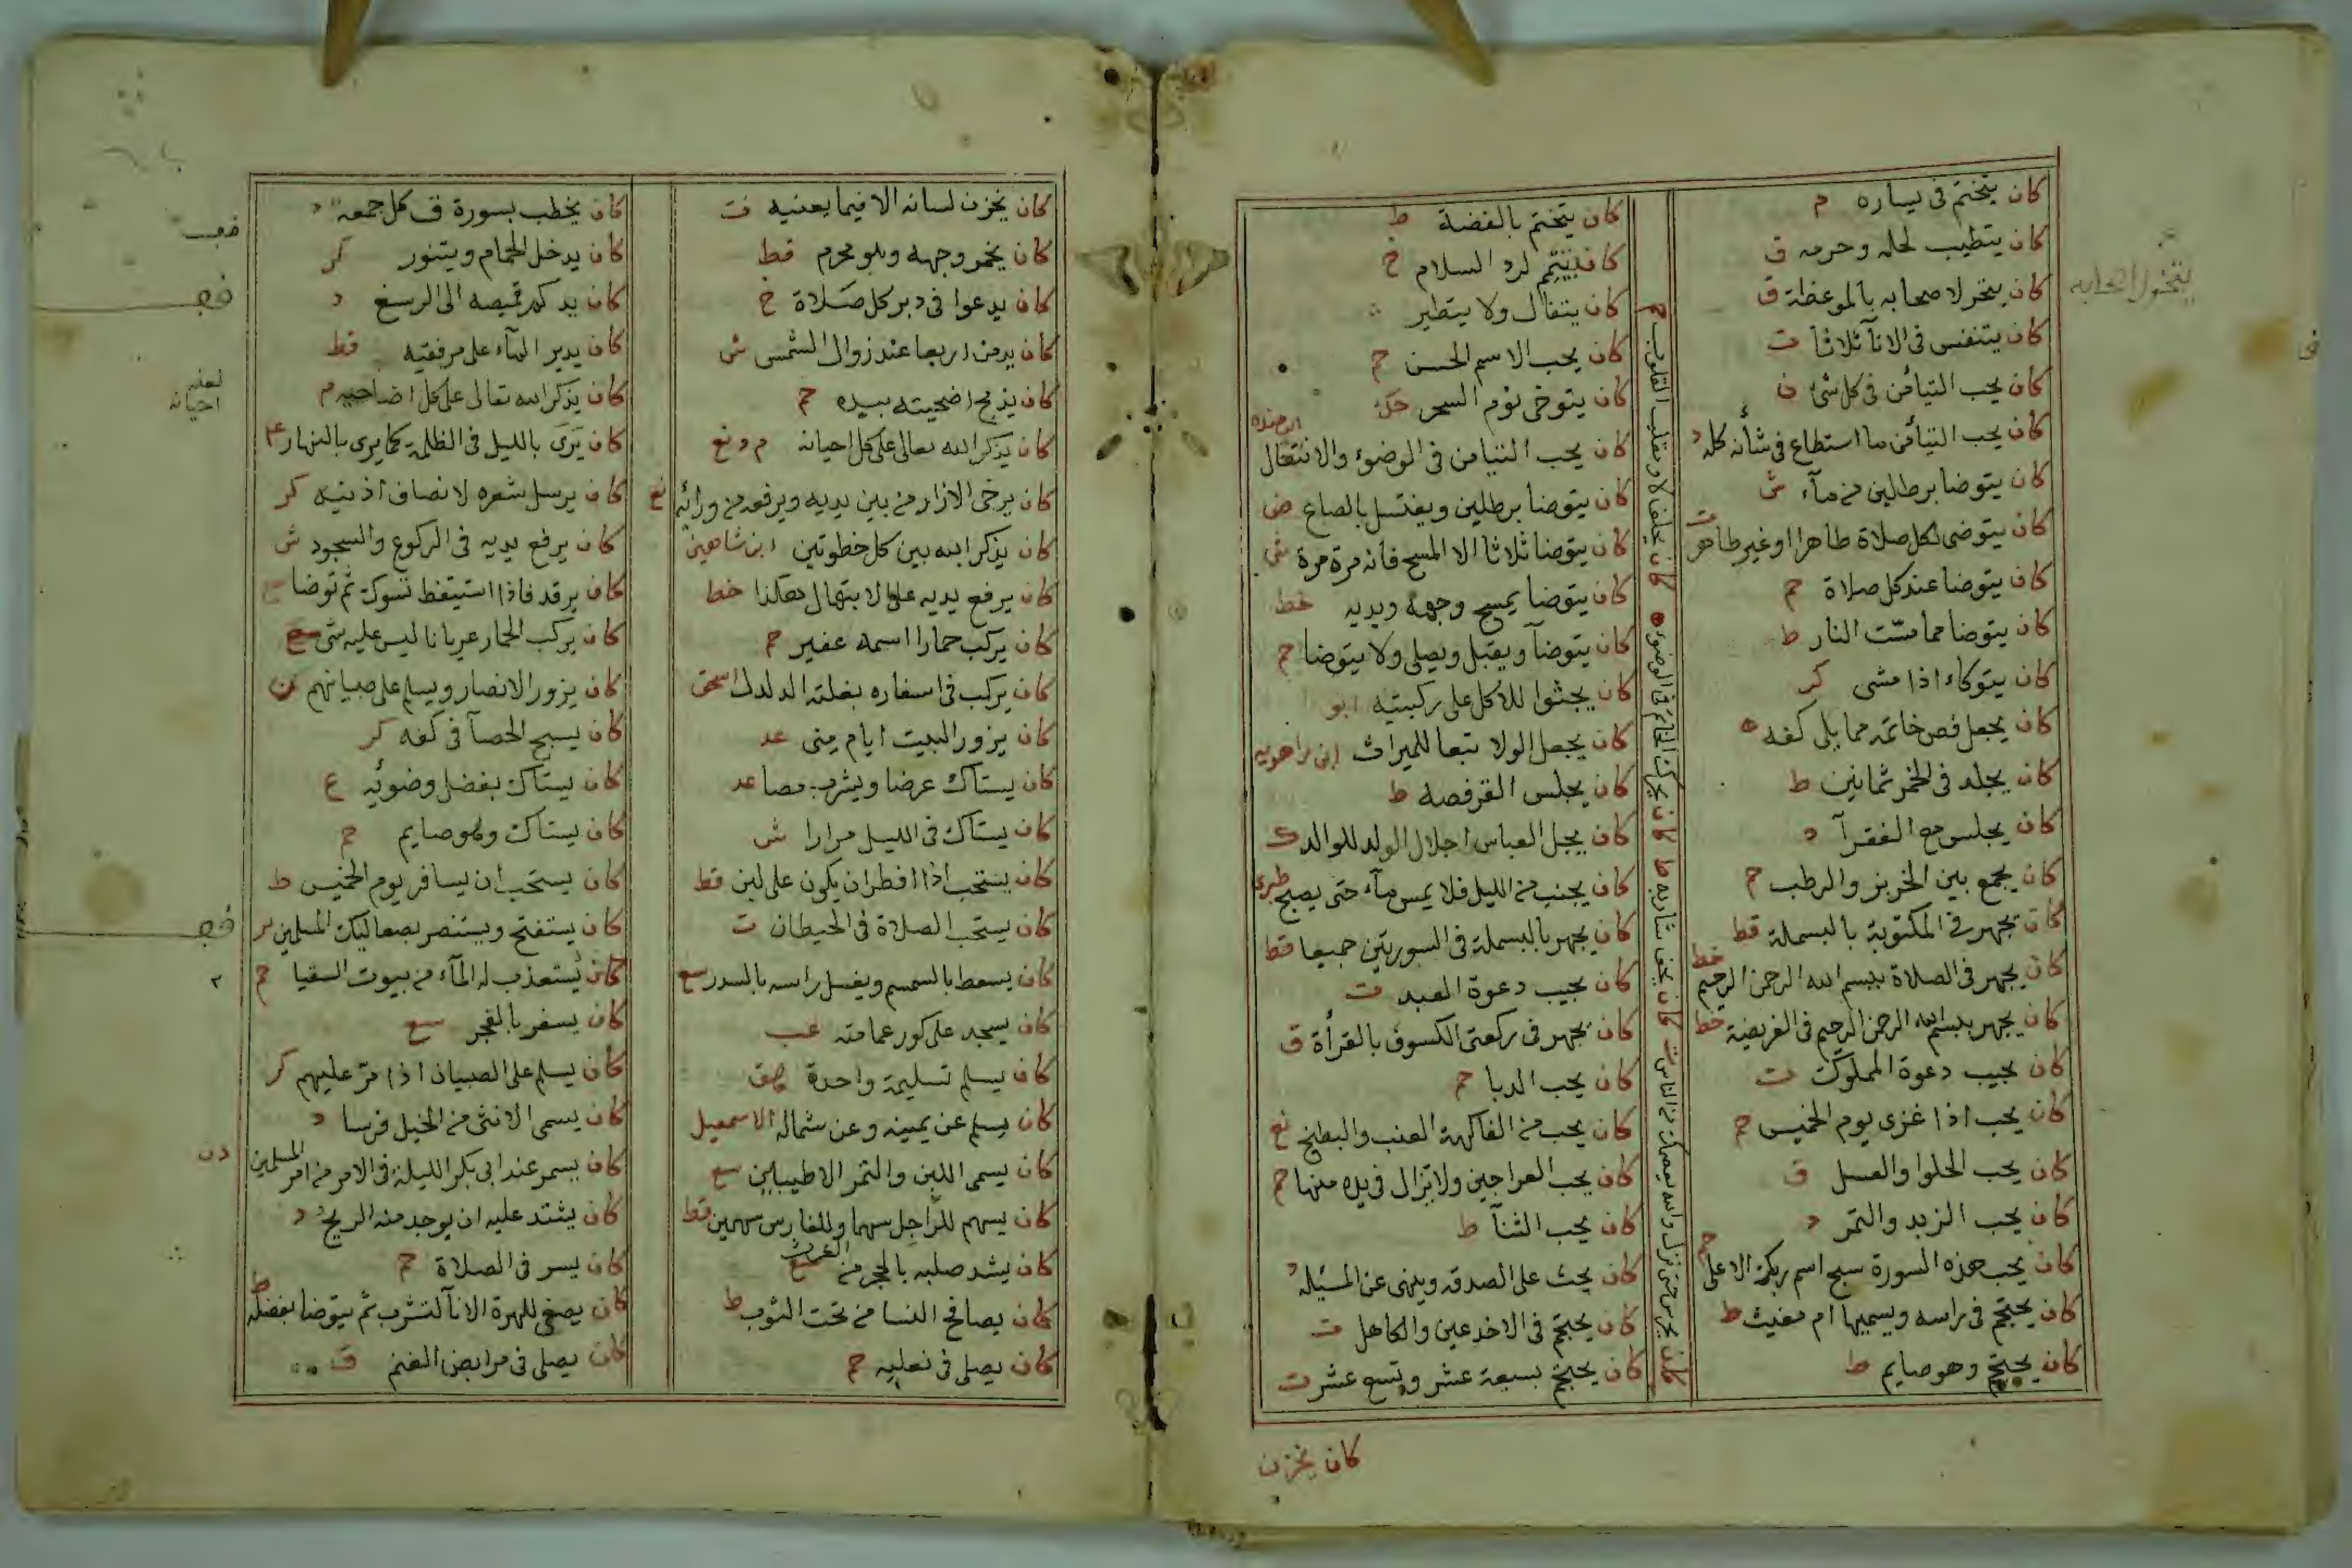 كان يتختم فى يساره م
كان يتطيب لحله وحرمه ق
كان يتخر لاصحابه بالموعظة ق
كان يتنفس فى الانآ ثلاثا ت
كان يحب التيامن فى كل شئ ن
كان يحب التيامن ما استطاع فى شأنه كله د
كان يتوضا برطلين من مآء ش
كان يتوضى لكل صلاة طاهرا او غير طاهر ت
كان يتوضا عند كل صلاة حم
كان يتوضا مما مست النار ط
كان يتوكاء اذا مشى كر
كان يجعل فص خاتمه مما يلى كفه ه
كان يجلد فى الخمر ثمانين ط
كان يجلس مع الفقرآ د
كان يجمع بين الخربز والرطب حم
كان يجهر فى المكتوبة بالبسملة قط
كان يجهر فى الصلاة ببسم الله الرحمن الرحيم خط
كان يجهر ببسم الله الرحمن الرحيم فى الفريضة خط
كان يجيب دعوة المملوك ت
كان يحب اذا غزى يوم الخميس حم
كان يحب الحلوا والعسل ق
كان يحب الزبد والتمر د
كان يحب هذه السورة سبح اسم ربك الاعلى حم
كان يحتجم فى راسه ويسميها ام مغيث ط
كان يحتجم وهو صايم ط
كان يحلف لا ومقلب القلوب ح
كان يحرك الخاتم فى الوضوء ه
كان يحف شاربه ط
كان يحرس حتى نزل والله يعصمك من الناس ت
كان يتختم بالفضة ط
كان يتيمم لرد السلام خ
كان يتفال ولا يتطير
كان يحب الاسم الحسن حم
كان يتوخى نوم السحر حك
كان يحب التيامن فى الوضوء والانتعال ابن منده
كان يتوضا برطلين ويغتسل بالصاع ض
كان يتوضا ثلاثا الا المسح فانه مرة مرة ش
كان يتوضا يمسح وجهه ويديه خط
كان يتوضآ ويقبل ويصلى ولا يتوضا حم
كان يجثوا للاكل على ركبتيه ابو
كان يجعل الولا تبعا للميراث ابن راهويه
كان يجلس القرفصة ط
كان يجل العباس اجلال الولد للوالد ك
كان يجنب من الليل فلا يمس مآء حتى يصبح طبرى
كان يجهر بالبسملة فى السورتين جميعا قط
كان يجيب دعوة العبد ت
كان يجهر فى ركعتى الكسوف بالقرأة ق
كان يحب الدبا حم
كان يحب من الفاكهة العنب والبطيخ نع
كان يحب العراجين ولا تزال فى يده منها حم
كان يحب الثنآ ط
كان يحث على الصدقه وينهى عن المسئله د
كان يحتجم فى الاخدعين والكاهل ت
كان يحتجم بسبعة عشر وتسع عشر ت
كان يخزن
كان يخزن لسانه الا فيما يعنيه ت
كان يخمر وجهه وهو محرم قط
كان يدعوا فى دبر كل صلاة خ
كان يدمن اربعا عند زوال الشمس ش
كان يذبح اضحيته بيده حم
كان يذكر الله تعالى على كل احيانه م د نع
كان يرخى الازار من بين يديه ويرفعه من ورائه نع
كان يذكر الله بين كل خطوتين ابن شاهين
كان يرفع يديه على الابتهال هكذا خط
كان يركب حمارا اسمه عفير حم
كان يركب فى اسفاره بغلته الدلدل اسحق
كان يزور البيت ايام منى عد
كان يستاك عرضا ويشرب مصا عد
كان يستاك فى الليل مرارا ش
كان يستحب اذا افطر ان يكون على لبن قط
كان يستحب الصلاة فى الحيطان ت
كان يسعط بالسمسم ويغسل راسه بالسدر سع
كان يسجد على كور عمامته عب
كان يسلم تسليمة واحدة
كان يسلم عن يمينه وعن شماله الاسمعيل
كان يسمى اللبن والتمر الاطيبلين سع
كان يسهم للراجل سهما وللفارس سهمين قط
كان يشد صلبه بالحجر من الغرث
كان يصافح النسا من تحت الثوب ط
كان يصلى فى نعليه حم
كان يخطب بسورة ق كل جمعة د
كان يدخل الحمام ويتنور كر
كان يد كم قميصه الى الرسغ د
كان يدير المآء على مرفقيه قط
كان يذكر الله تعالى على كل اضاحيه م
لعله
احيانه
كان يرى بالليل فى الظلمة كما يرى بالنهار
كان يرسل شعره لانصاف اذنيه كر
كان يرفع يديه فى الركوع والسجود ش
كان يرقد فاذا استيقظ تسوك ثم توضا
كان يركب الحمار عريانا ليس عليه شى سع
كان يزور الانصار ويسلم على صبيانهم ن
كان يسبح الحصآ فى كفه كر
كان يستاك بفضل وضوئه ع
كان يستاك وهو صايم حم
كان يستحب ان يسافر يوم الخميس ط
كان يستفتح ويستنصر بصعاليك المسلمين
كان يستعذب له المآء من بيوت السقيا حم
كان يسفر بالفجر سع
كان يسلم على الصبيان اذا مر عليهم كر
كان يسمى الانثى من الخيل فرسا د
كان يسمر عند ابى بكر الليلة فى الامر من امر المسلمين
كان يشتد عليه ان يوجد منه الريح د
كان يسر فى الصلاة حم
كان يصغى للهرة الانآ لتشرب ثم يتوضا بفضله ط
كان يصلى فى مرابض الغنم ق